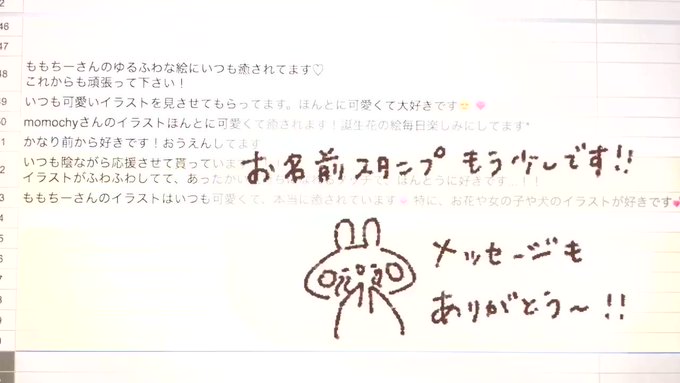 46
47
48
ももちーさんのゆるふわな絵にいつも癒されてます♡
これからも頑張って下さい！
いつも可愛いイラストを見させてもらってます。ほんとに可愛くて大好きです
momochyさんのイラストほんとに可愛くて癒されます！誕生花の絵毎日楽しみにしてます*
かなり前から好きです！おうえんしてます
いつも陰ながら応援させて貰っていま
お名前スタンプもう少しです!!
イラストがふわふわしてて、あったかい
ほんとうに好きです
ももちーさんのイラストはいつも可愛くて、本当に癒されています 特に、お花や女の子や犬のイラストが好きです
メッセージも
ありがとう〜!!